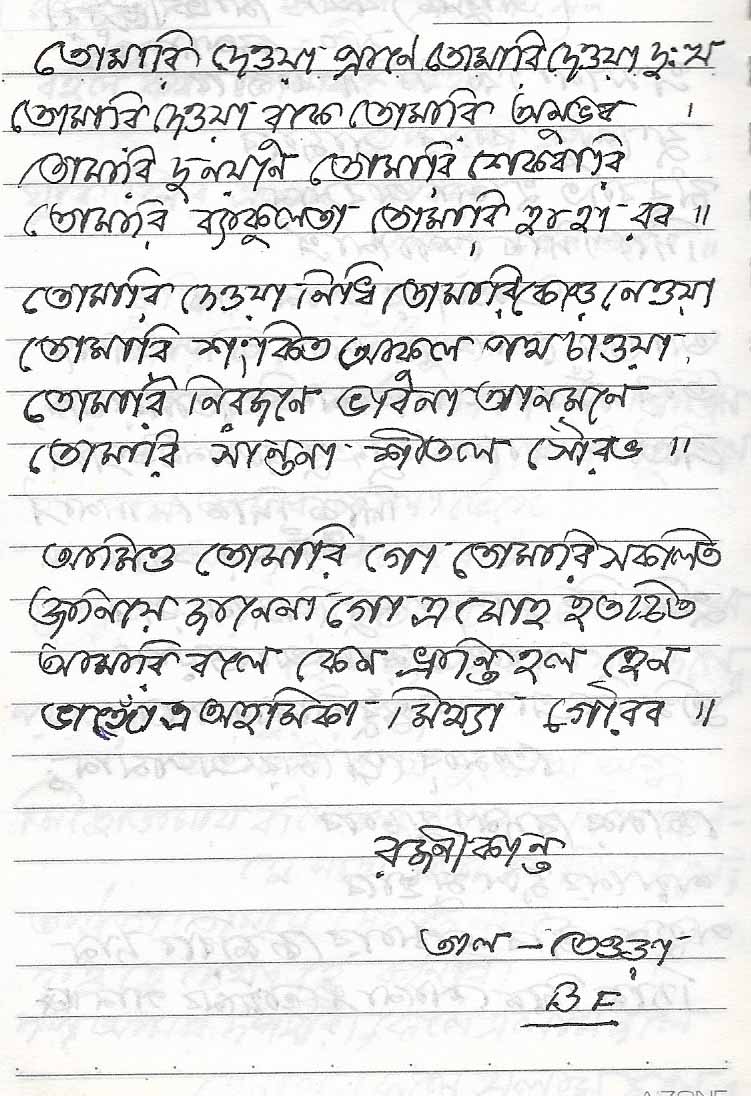 তোমারি দেওয়া প্রানে তোমারি দেওয়া দুঃখ
তোমারি দেওয়া বুকে তোমারি অনুভব ।
তোমারি দুনয়নে তোমারি শোকবারি
তোমারি ব্যাকুলতা তোমারি হা হা রব ॥
তোমারি দেওয়া নিধি তোমারি কেড়ে নেওয়া
তোমারি শংকিত আকুল পথ চাওয়া
তোমারি নিরজনে ভাবনা আনমনে
তোমারি সান্তনা শীতল সৌরভ ॥
আমিও তোমারি গো তোমারি সকলিত
জানিয়ে জানেনা গো এ মোহ হত চিত
আমারি বলে কেন ভ্রান্তি হল হেন
ভাঙ্গো এ অহমিকা মিথ্যা গৌরব ॥
রজনীকান্ত
তাল - তেওড়া
B F